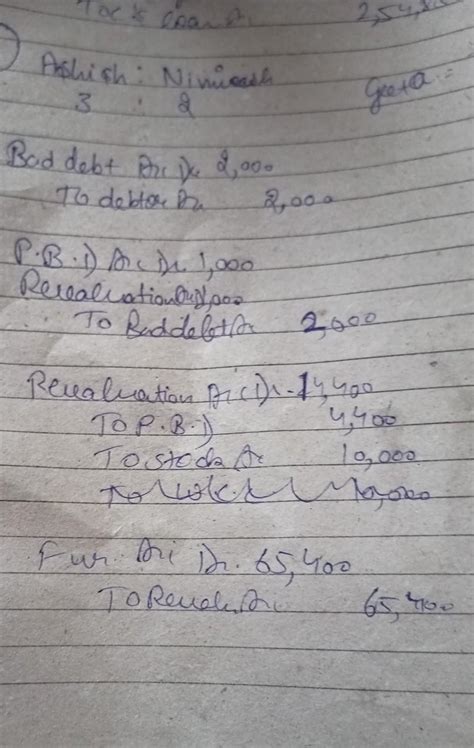 2,54,
Ashish : Nimisash Geeta =
3 : 2
Bad debt A/c Dr 2,000
To debtor A/c 2,000
P.B.D A/c Dr. 1,000
Revaluation Dr 1,000
To Bad debt A/c 2,000
Revaluation A/c Dr - 14,400
To P.B.D 4,400
To stock A/c 10,000
To 10,000
Fur. A/c Dr. 65,400
To Reval. A/c 65,400